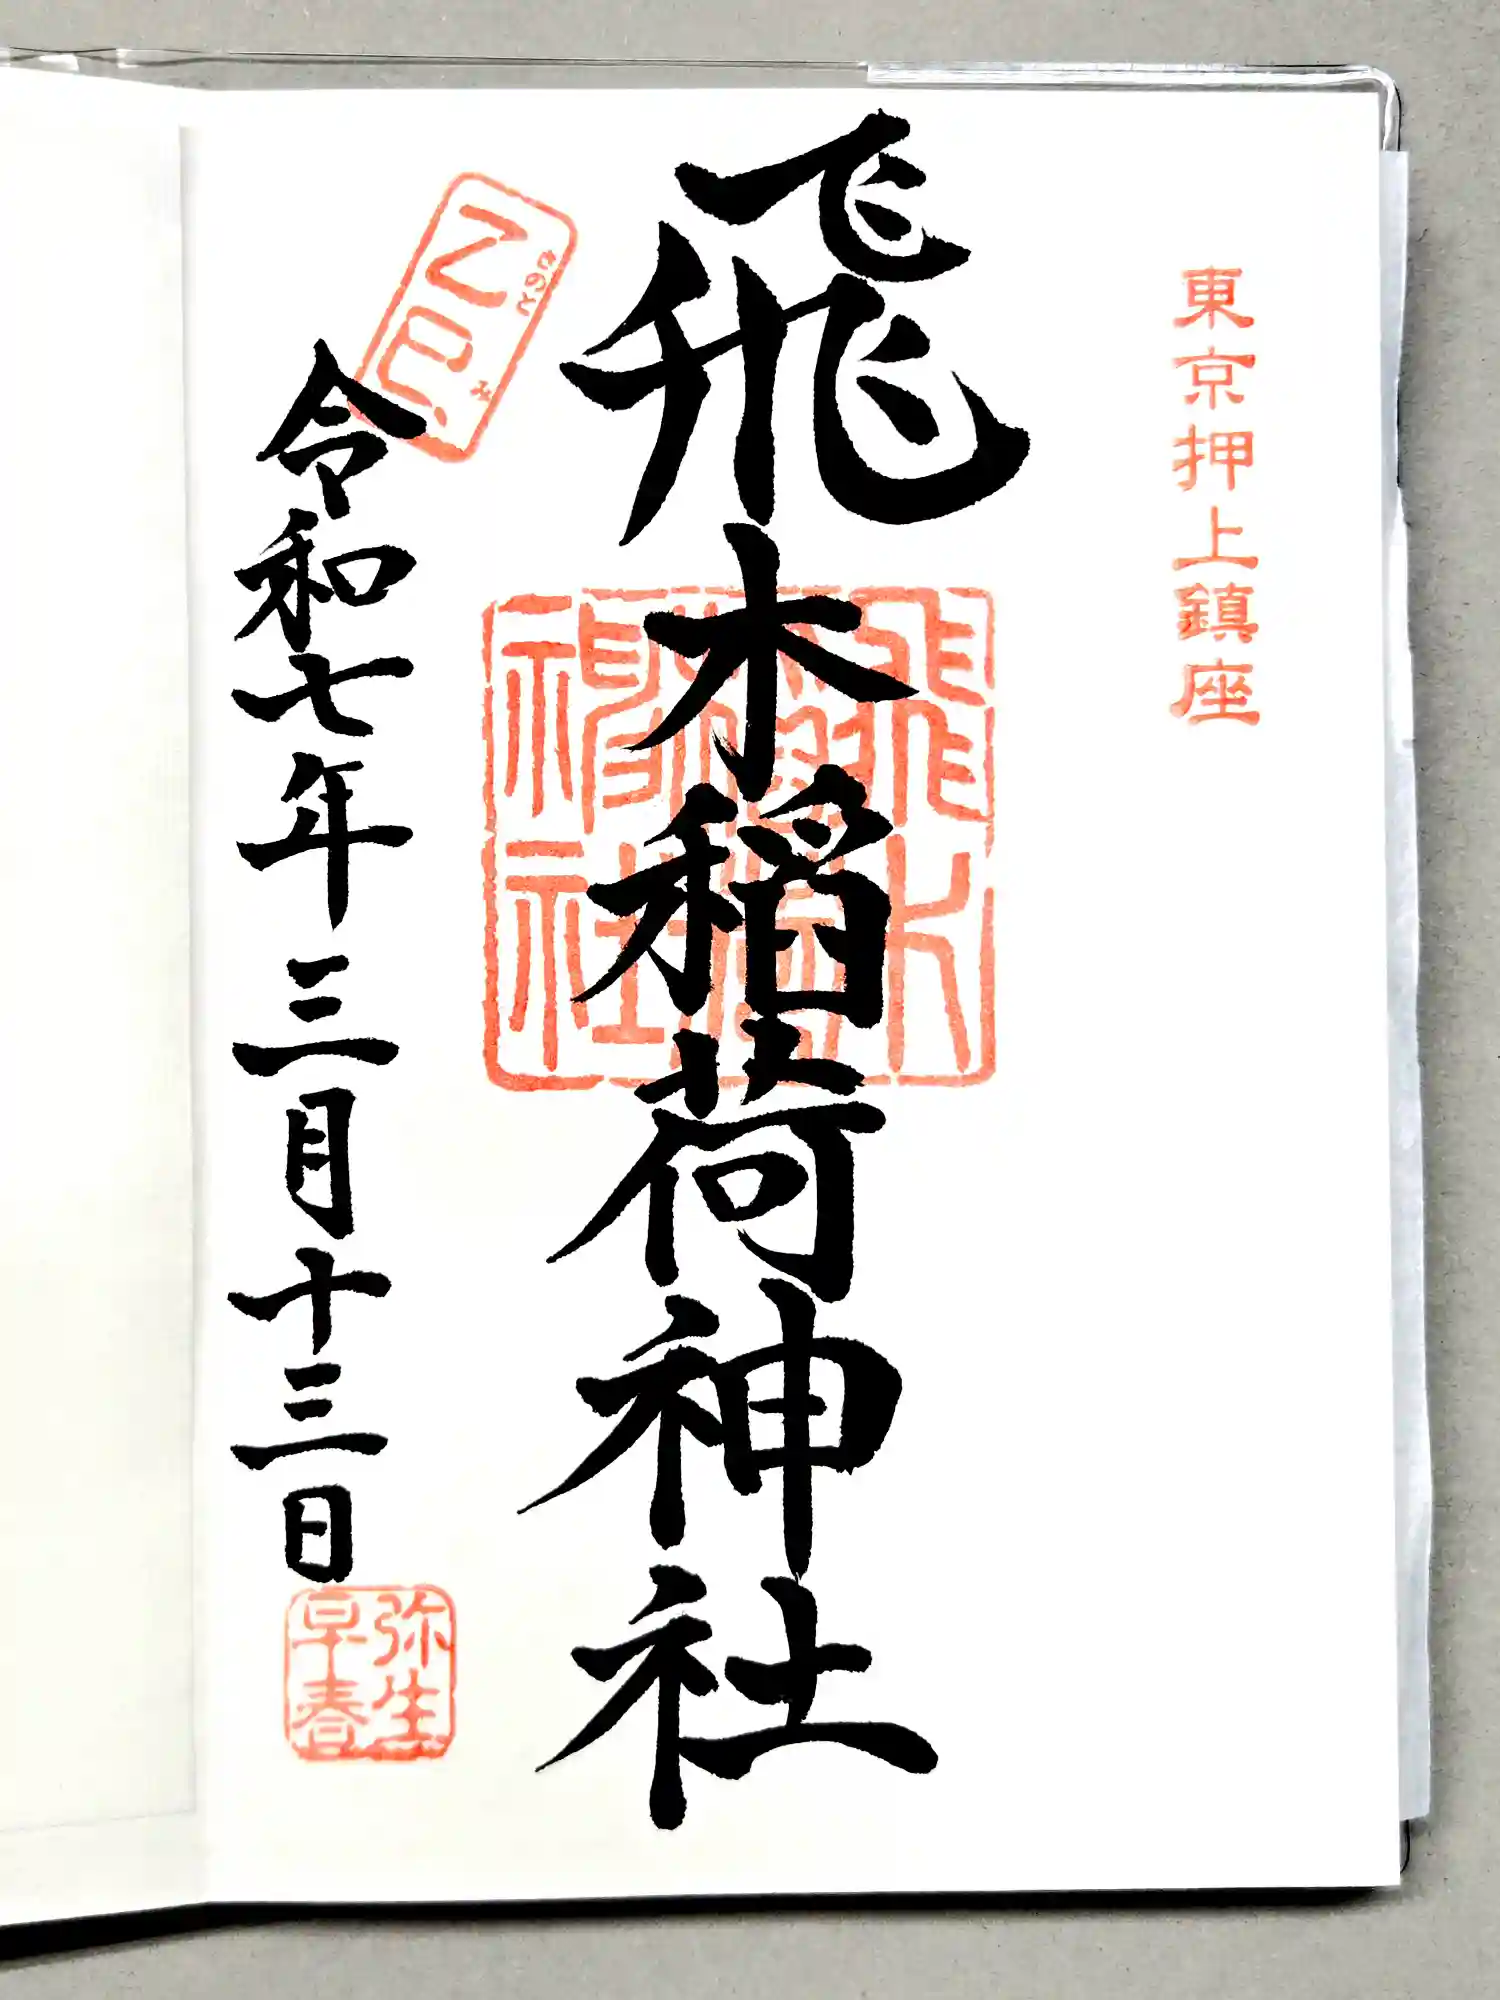 東京押上鎮座
飛木稲荷神社
飛木
神社
きのと み
乙巳
令和七年三月十三日
弥生
早春